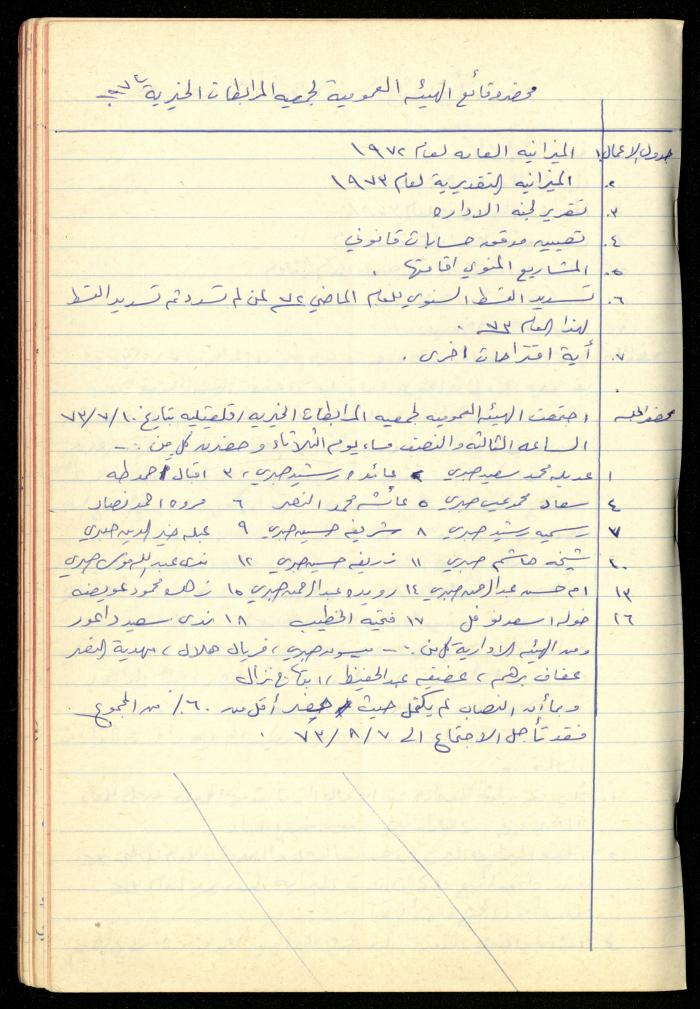 محضر وقائع الهيئة العمومية لجمعية المرابطات الخيرية ٩٧٢
جدول الاعمال ١. الميزانيه العامه لعام ١٩٧٢
٢. الميزانيه التقديرية لعام ١٩٧٣
٣. تقرير لجنه الاداره
٤. تعيين مدقق حسابات قانوني
٥. المشاريع المنوي اقامتها .
٦. تسديد القسط السنوي للعام الماضي ٧٢ لمن لم تسدد ثم تسديد القسط
لهذا العام ٧٣ .
٧. أية اقتراحات اخرى .
محضر الجلسه اجتمعت الهيئه العموميه لجمعيه المرابطات الخيريه / قلقيليه بتاريخ ١٠/٧/٧٣
الساعه الثالثه والنصف مساء يوم الثلاثاء وحضرت كل من :-
١ عديله محمد سعيد صبري ٢ عائده رشيد صبري ، ٣ اقبال احمد طه
٤ سعاد محمد صبري ٥ عائشه محمد النصر ٦ مروه احمد نصار
٧ رسميه رشيد صبري ٨ شريفه حسين صبري ٩ عبله خير الدين صبري
١٠ شيخه هاشم صبري ١١ نريفه حسين صبري ١٢ ندى عبد صبري
١٣ ام حسن عبدالرحمن صبري ١٤ رويده عبدالرحمن صبري ١٥ زهره محمود عويضه
١٦ خوله اسعد نوفل ١٧ فتحية الخطيب ١٨ ندى سعيد داعور
ومن الهيئه الاداريه كل من :- ميسون صبري ، فريال هلال ، مهدية النصر
عفاف برهم ، عفيفه عبدالحفيظ ، ابتهاج نزال
وبما أن النصاب لم يكتمل حيث حضر أقل من ٦٠٪ من المجموع
فقد تأجل الاجتماع الى ٧/٨/٧٣ .